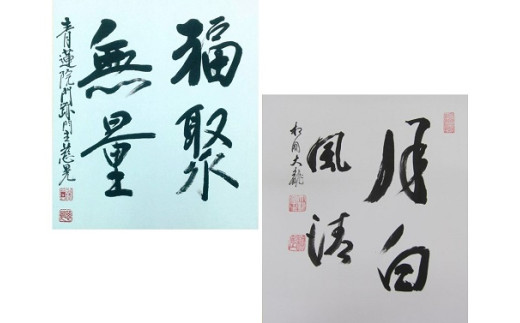 福聚
無量
青蓮院門跡門主慈晃
月白
風清